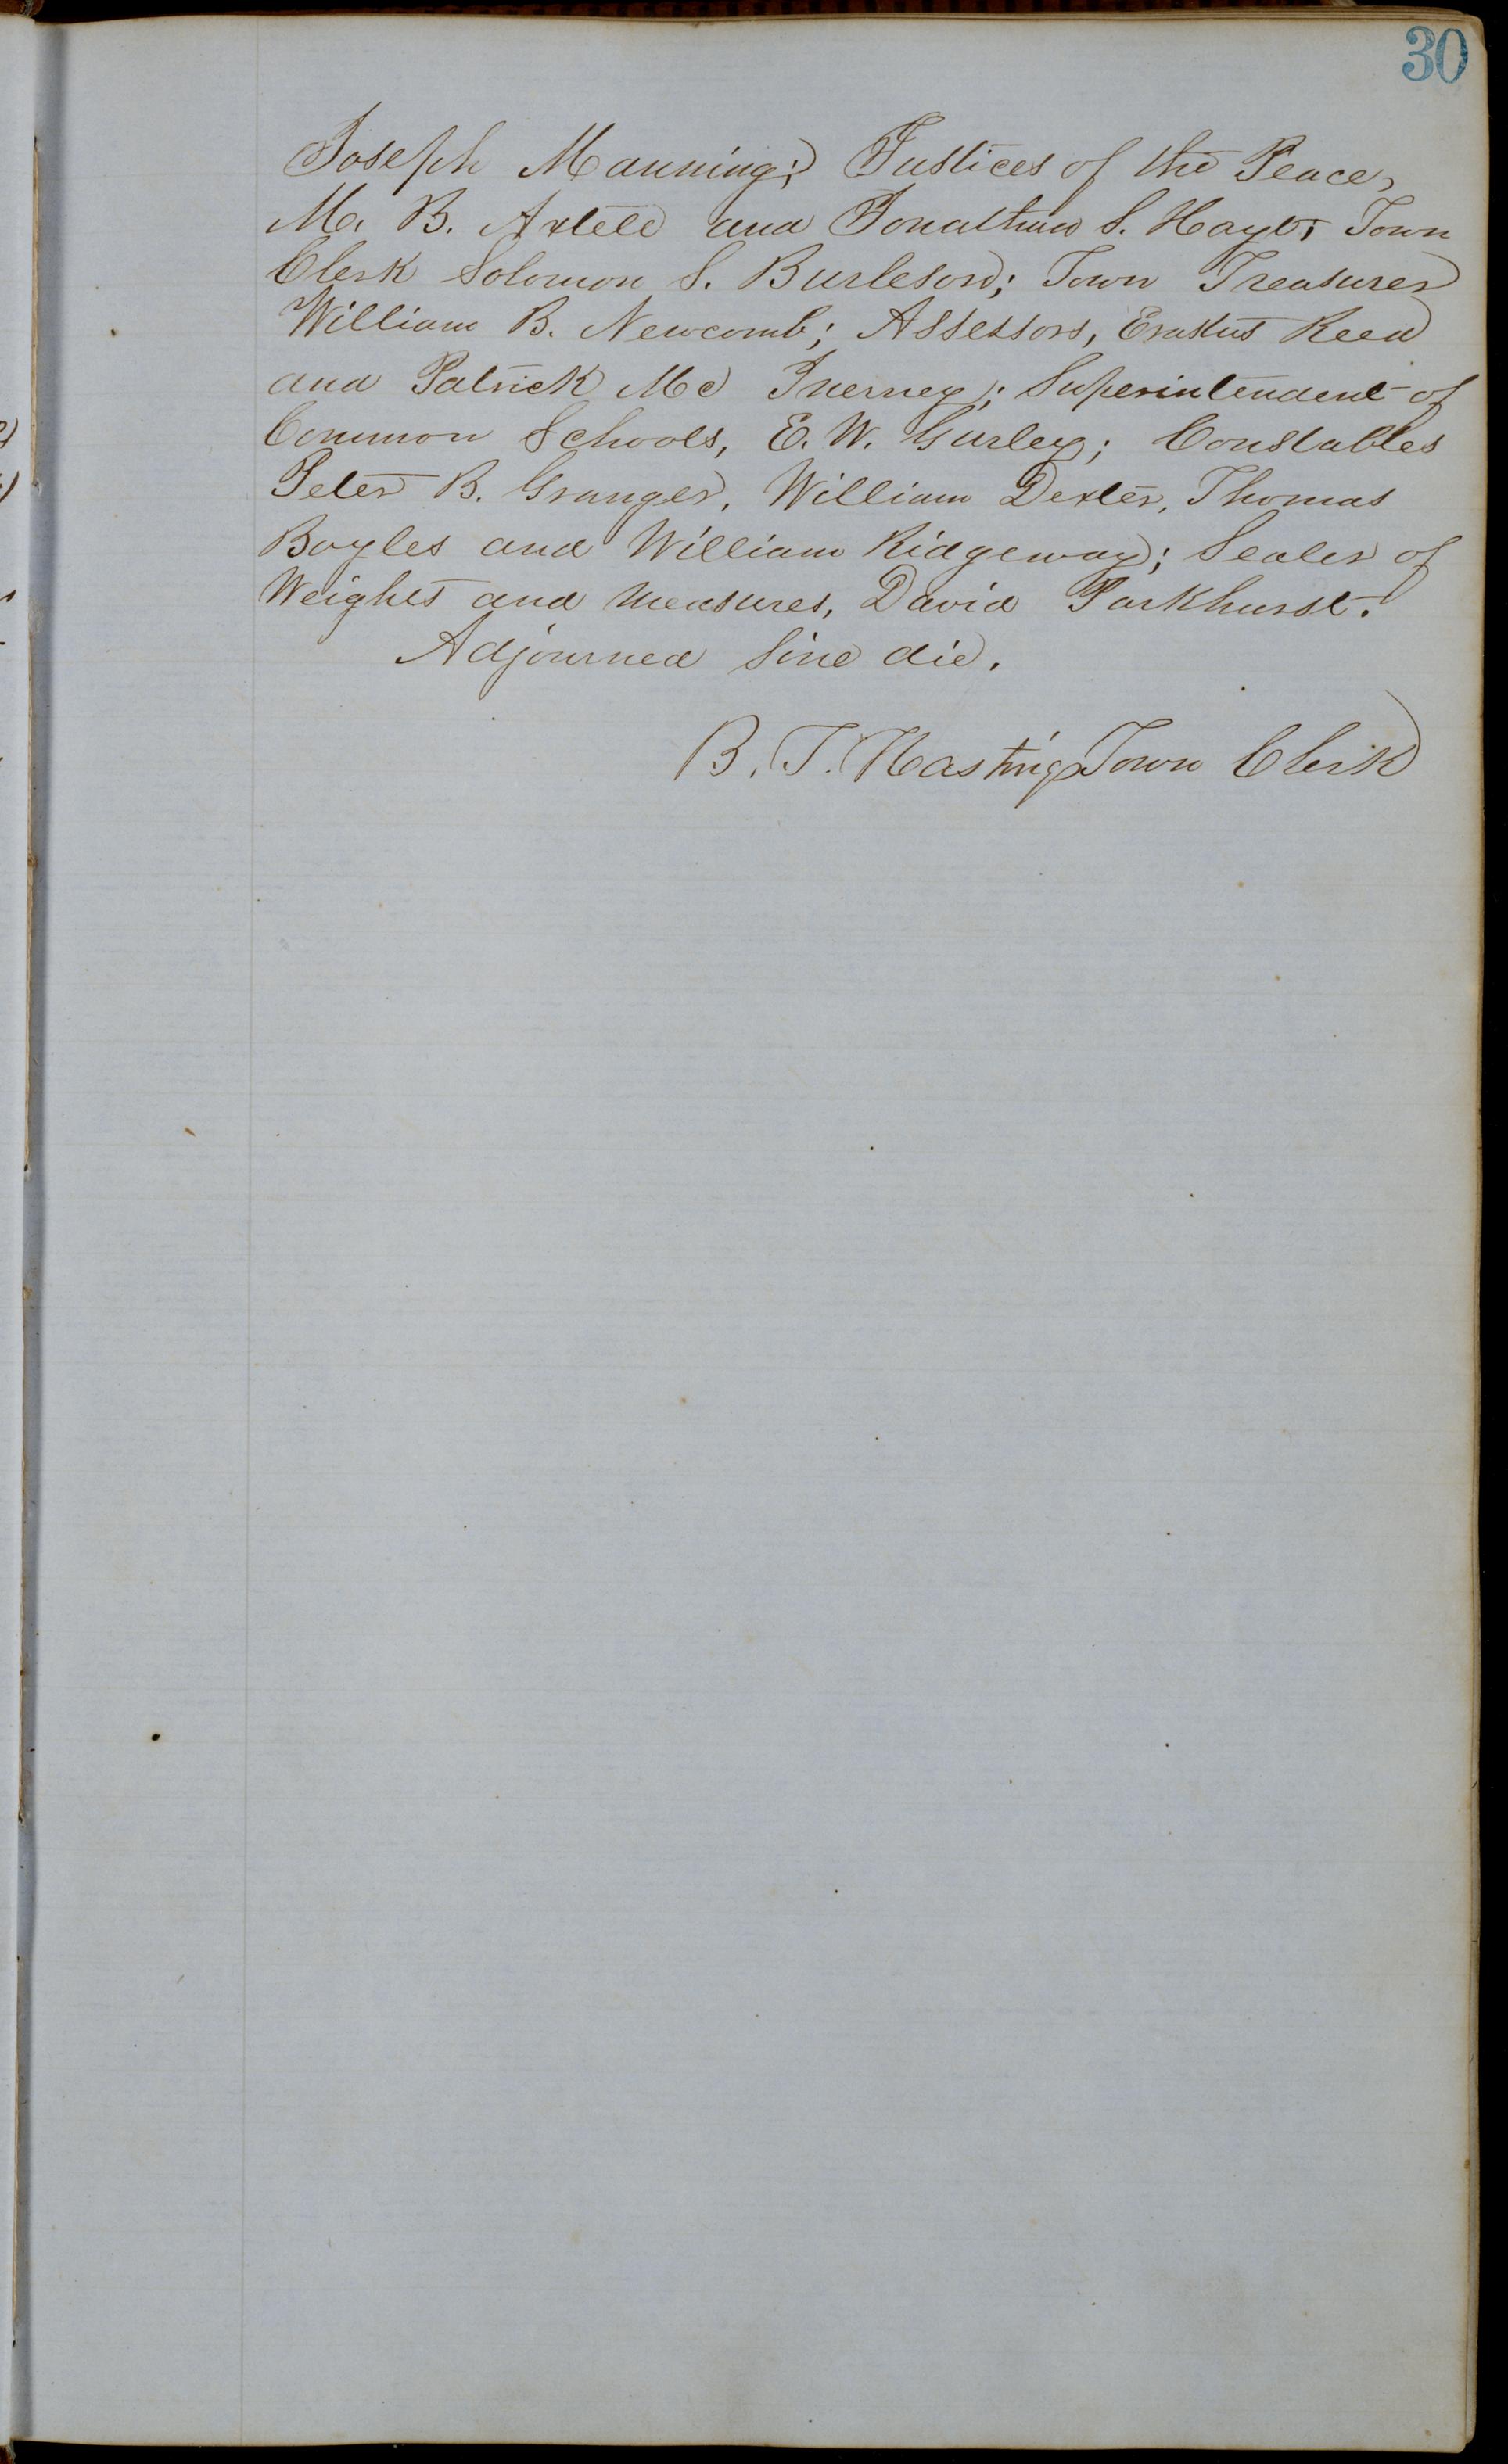 30
Joseph Manning; Justices of the Peace,
M. B. Axtell and Jonathan S. Hayt; Town
Clerk Solomon S. Burleson; Town Treasurer
William B. Newcomb; Assessors, Erastus Reed
and Patrick Mc Inerney; Superintendent of
Common Schools, E. W. Gurley; Constables
Peter B. Granger, William Dexter, Thomas
Boyles and William Ridgeway; Sealer of
Weights and Measures, David Parkhurst.
Adjourned Sine die.
B. T. Hastings Town Clerk